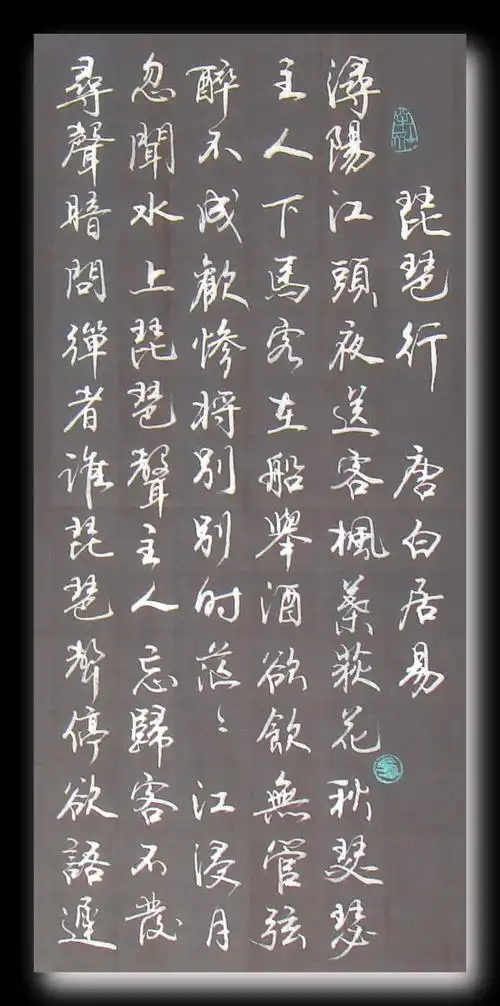 琵琶行 唐白居易
潯陽江頭夜送客楓葉荻花秋瑟瑟
主人下馬客在船舉酒欲飲無管弦
醉不成歡慘將別別時茫〻江浸月
忽聞水上琵琶聲主人忘歸客不發
尋聲暗問彈者誰琵琶聲停欲語遲